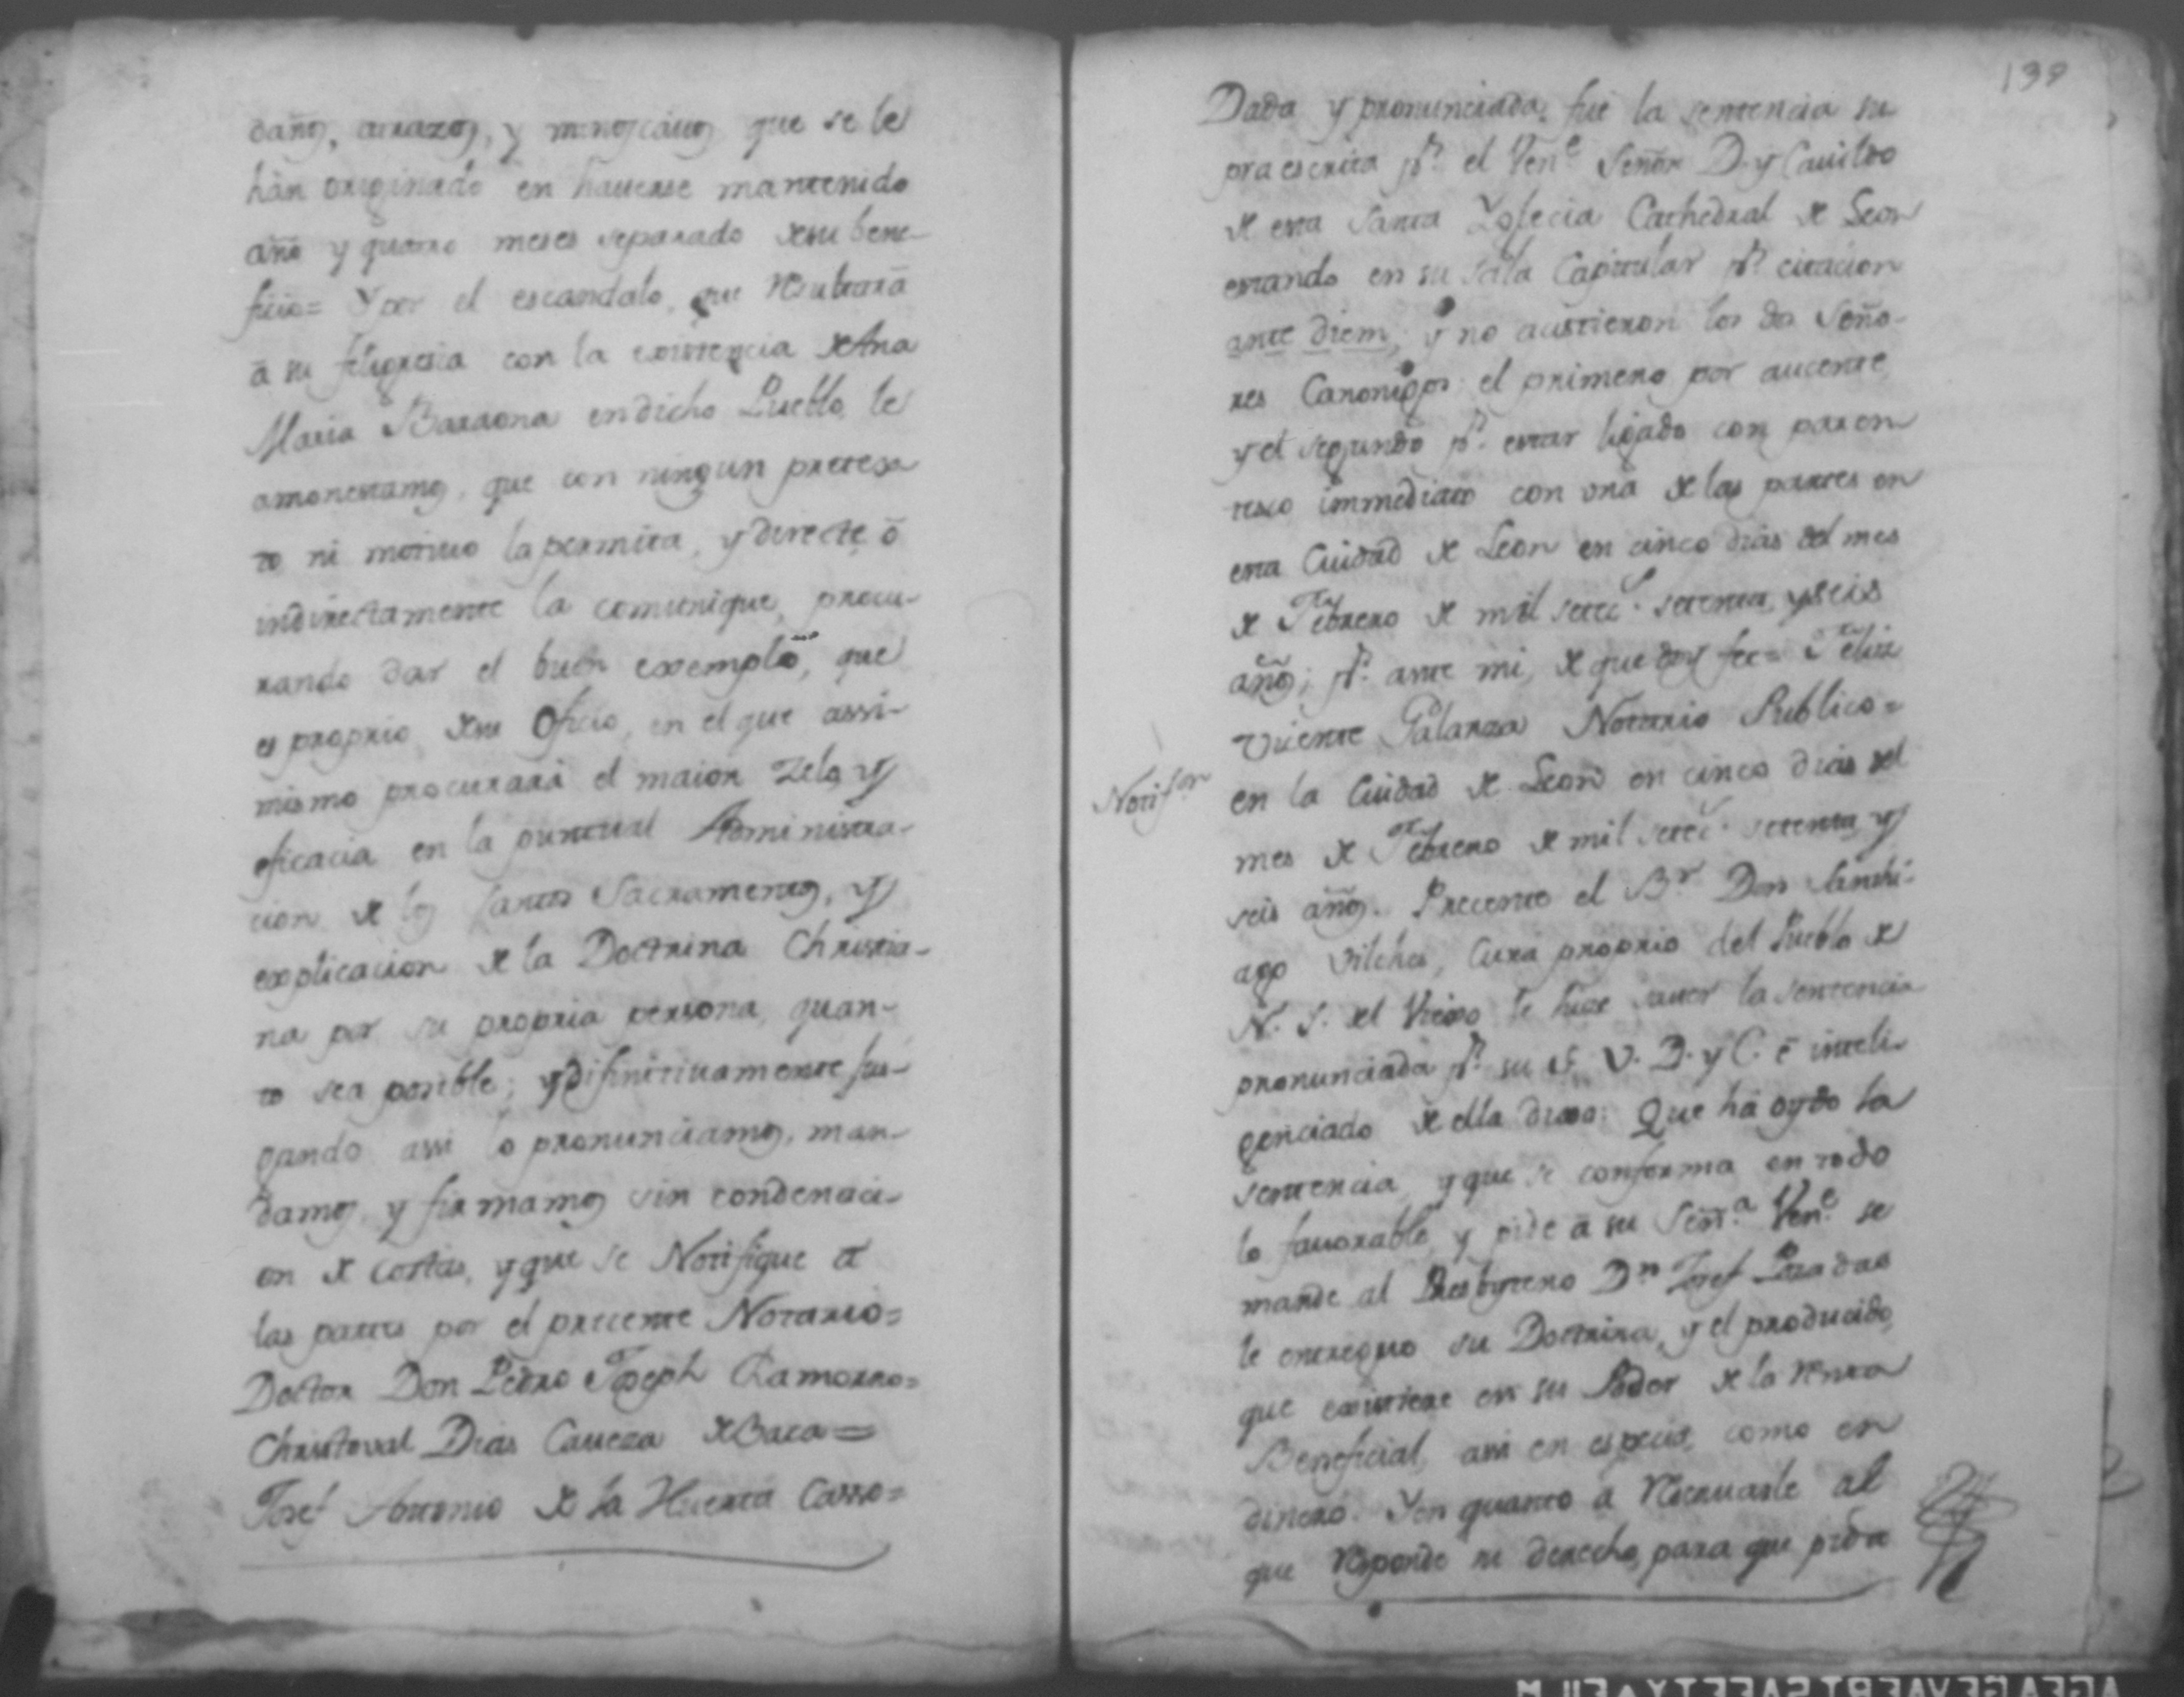 daños, atrazos, y menoscauos que se le
hán originado en hauerse mantenido
año y quatro meses separado de su bene-
ficio= Y por el escandalo, que resultará
á su feligresia con la existencia de Ana
Maria Baraona en dicho Pueblo, le
amonestamos, que con ningun pretes-
to ni motivo la permita, y directe, ó
indirectamente la comunique, procu-
rando dar el buen exemplo, que
es proprio de su Oficio, en el que assi-
mismo procurará el maior zelo, y
eficacia en la puntual Administra-
cion de los santos Sacramentos, y
explicacion de la Doctrina Christia-
na por su propria persona, quan-
to sea posible; y difinitiuamente jus-
gando assi lo pronunciamos, man-
damos, y firmamos sin condenaci-
on de costas, y que se Notifique á
las partes por el precente Notario=
Doctor Don Pedro Joseph Chamorro=
Christoval Dias Caueza de Baca=
Josef Antonio de la Huerta Casso=
139
Dada y pronunciada fué la sentencia su
pra escrita pr. el Vene. Señor D. y Cauildo
de esta Santa Yglecia Cathedral de Leon
estando en su Sala Capitular pr. citacion
ante diem, y no asistieron los dos Seño-
res Canonigos: el primero por aucente
y el segundo pr. estar ligado con paren
tesco immediato con una de las partes en
esta Ciudad de Leon en cinco dias del mes
de Febrero de mil setecs. setenta, y seis
años; pr. ante mi, de que doy fee= Felix
Vicente Galarza Notario Publico=
Notifon
en la Ciudad de Leon en cinco dias del
mes de Febrero de mil setecs. setenta, y
seis años. Precente el Br. Don Santhi-
ago Vilches, Cura proprio del Pueblo de
N. S. del Viejo le hice sauer la sentencia
pronunciada pr. su S. V. D. y C. é inteli-
genciado de ella dixo: Que há oydo la
sentencia, y que se conforma en todo
lo fauorable, y pide á su Señra. Vene. se
mande al Presbytero Dn. Josef Posadas
le entregue su Doctrina, y el producido,
que existiere en su Poder de la renta
Beneficial, assi en especie, como en
dinero. Y en quanto á reservarle al
que responde su derecho, para que pida